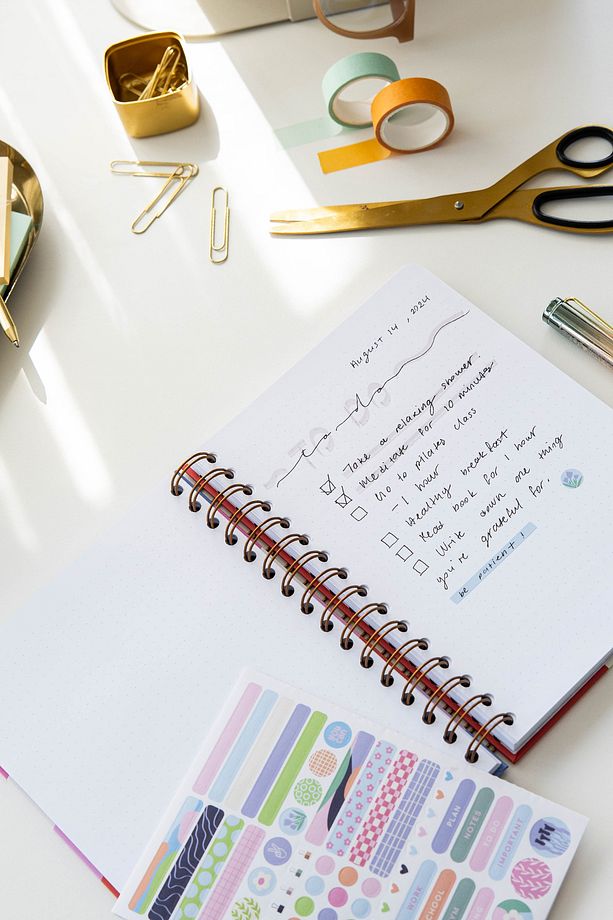 August 14, 2024
TO DO
to do
Take a relaxing shower.
Meditate for 10 minutes
Go to pilates class
- 1 hour
Healthy breakfast
Read book for 1 hour
Write down one thing
you're grateful for.
be patient!
PLAN
NOTES
TO DO
IMPORTANT
WORK
PERSONAL
SCHOOL